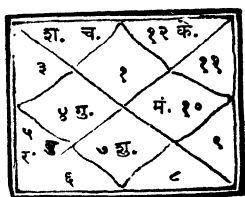 श. च. १२ के.
३ १ ११
४ गु. मं. १०
५ ७ शु. ९
र.
६ ८